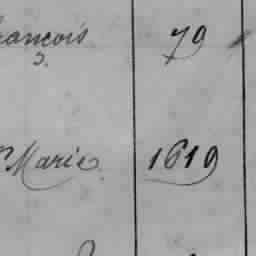 rançois 79
Marie 1619